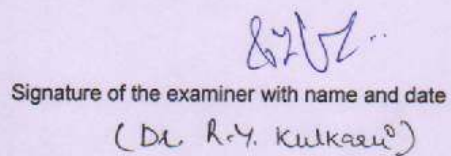 Signature of the examiner with name and date
(Dr. R.Y. Kulkarni)